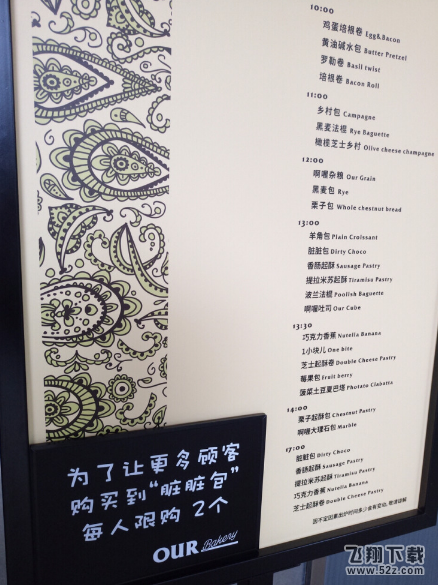 10:00
鸡蛋培根卷 Egg&Bacon
黄油碱水包 Butter Pretzel
罗勒卷 Basil twist
培根卷 Bacon Roll
11:00
乡村包 Campagne
黑麦法棍 Rye Baguette
橄榄芝士乡村 Olive cheese champagne
12:00
啊喔杂粮 Our Grain
黑麦包 Rye
栗子包 Whole chestnut bread
13:00
羊角包 Plain Croissant
脏脏包 Dirty Choco
香肠起酥 Sausage Pastry
提拉米苏起酥 Tiramisu Pastry
波兰法棍 Poolish Baguette
啊喔吐司 Our Cube
13:30
巧克力香蕉 Nutella Banana
1小块儿 One bite
芝士起酥卷 Double Cheese Pastry
莓果包 Fruit berry
菠菜土豆夏巴塔 Photato Ciabatta
14:00
栗子起酥包 Chestnut Pastry
啊喔大理石包 Marble
17:00
脏脏包 Dirty Choco
香肠起酥 Sausage Pastry
提拉米苏起酥 Tiramisu Pastry
巧克力香蕉 Nutella Banana
芝士起酥卷 Double Cheese Pastry
因不定因素出炉时间多少会有变动, 敬请谅解
为了让更多顾客
购买到“脏脏包”
每人限购 2个
OUR Bakery
飞翔下载
www.52z.com